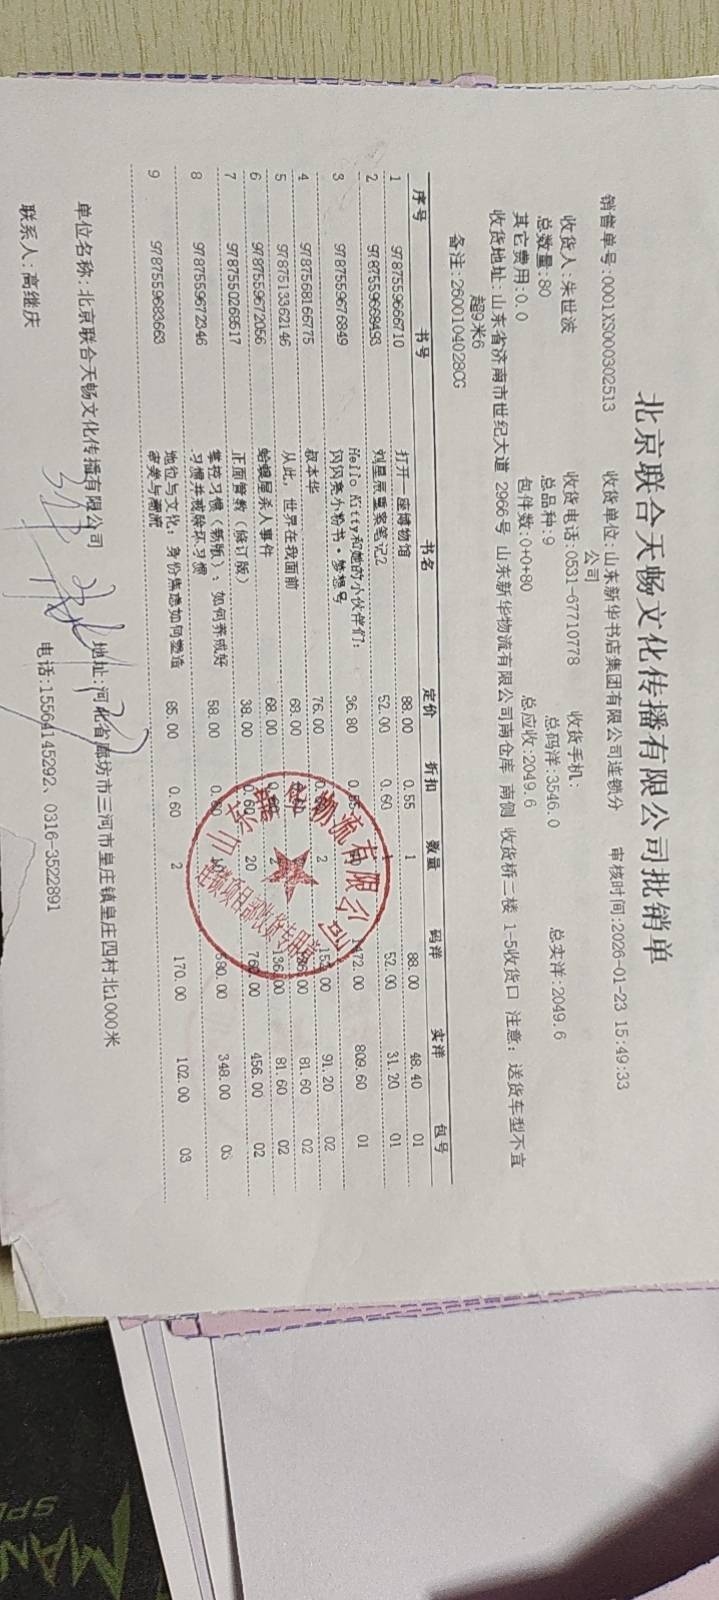 北京联合天畅文化传播有限公司批销单
销售单号:0001XS000302513 收货单位:山东新华书店集团有限公司连锁分公司 审核时间:2026-01-23 15:49:33
收货人:朱世波 收货电话:0531-67710778 收货手机:
总数量:80 总品种:9 总码洋:3546.0 总实洋:2049.6
其它费用:0.0 包件数:0+0+80 总应收:2049.6
收货地址:山东省济南市世纪大道 2966号 山东新华物流有限公司南仓库 南侧 收货桥二楼 1-5收货口 注意:送货车型不宜
超9米6
备注:2600104028CG
序号 书号 书名 定价 折扣 数量 码洋 实洋 包号
1 9787559666710 打开一座博物馆 88.00 0.55 1 88.00 48.40 01
2 9787559668493 刘星辰重案笔记2 52.00 0.60 1 52.00 31.20 01
3 9787559676849 Hello Kitty和她的小伙伴们: 36.80 0.55 1472.00 809.60 01
闪闪亮小粉书·梦想号
4 9787568166775 叔本华 76.00 2 152.00 91.20 02
5 9787513362146 从此,世界在我面前 68.00 0.60 136.00 81.60 02
6 9787559672056 蛤蟆屋杀人事件 68.00 0.60 2 136.00 81.60 02
7 9787550268517 正面管教(修订版) 38.00 0.60 20 760.00 456.00 02
8 9787559672346 掌控习惯(新版):如何养成好 58.00 0.60 580.00 348.00 03
习惯并戒除坏习惯
9 9787559683663 地位与文化:身份焦虑如何塑造 85.00 0.60 2 170.00 102.00 03
审美与潮流
山东新华物流有限公司
连锁项目部收货专用章
单位名称:北京联合天畅文化传播有限公司 地址:河北省廊坊市三河市皇庄镇皇庄四村北1000米
联系人:高继庆 电话:15564145292、0316-3522891
MAN
SPL